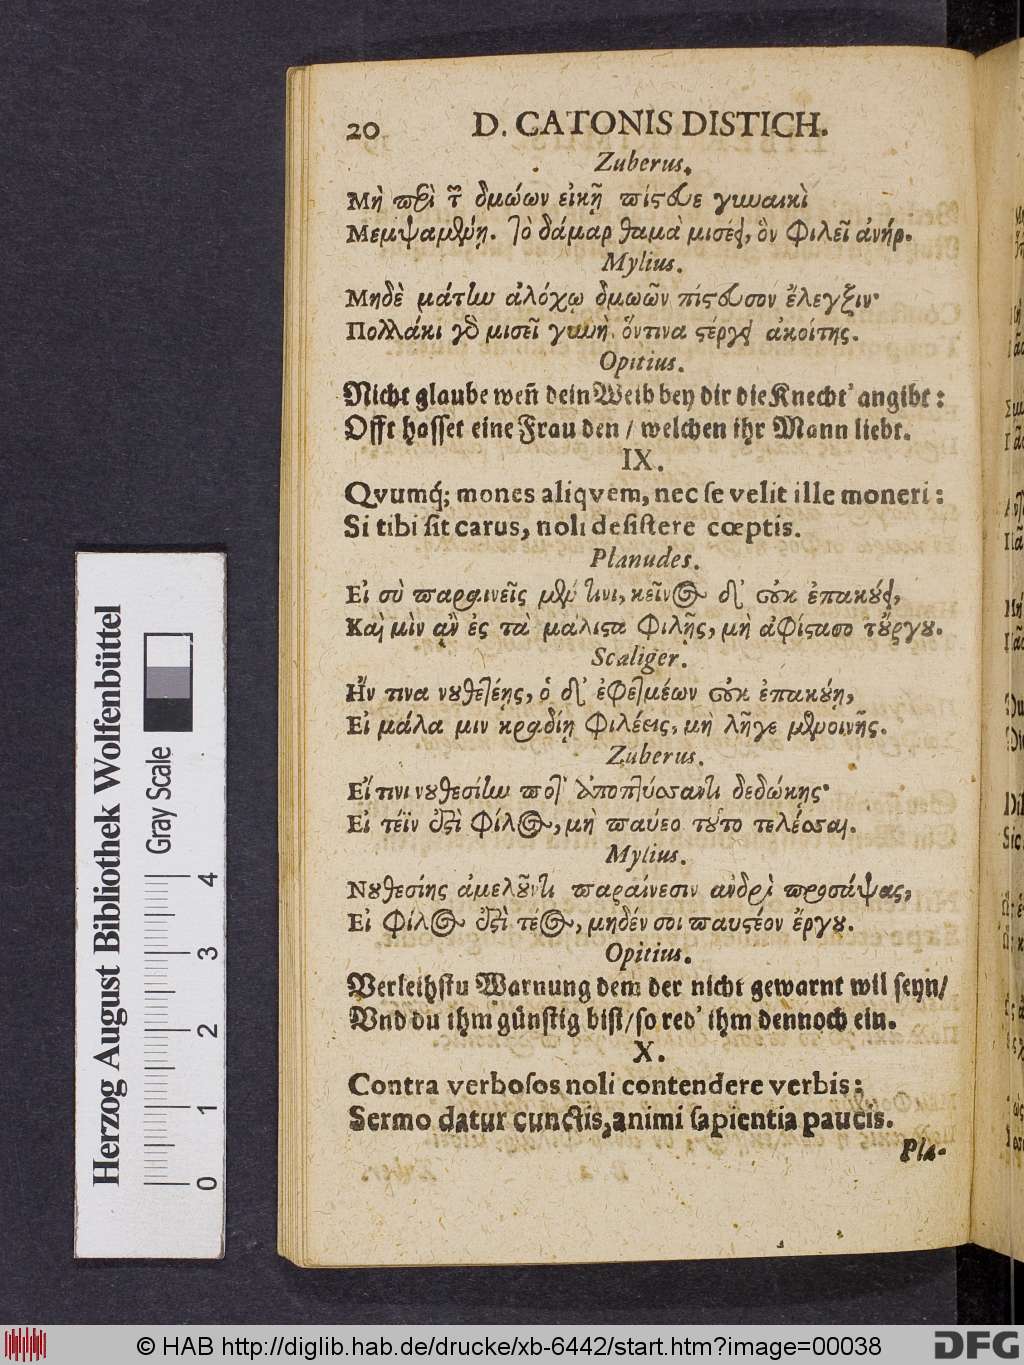 20 D. CATONIS DISTICH.
Zuberus.
Μὴ περὶ τ δμώων εἰκῇ πίστευε γυναικὶ
Μεμψαμένῃ. τὸ δάμαρ θαμὰ μισέει, ὃν φιλεῖ ἀνήρ.
Mylius.
Μηδὲ μάτην ἀλόχῳ δμωῶν πίστευσον ἔλεγξιν·
Πολλάκι γὸ μισεῖ γυνὴ ὅντινα στέργει ἀκοίτης.
Opitius.
Nicht glaube weñ dein Weib bey dir die Knecht' angibt:
Offt hasset eine Frau den / welchen ihr Mann liebt.
IX.
Qvumq́; mones aliqvem, nec ſe velit ille moneri:
Si tibi ſit carus, noli deſiſtere cœptis.
Planudes.
Εἰ σὺ παραινεῖς μέν τινι, κεῖνος δ' οὐκ ἐπακούει,
Καὶ μὶν ἂν ἐς τὰ μάλιστα φιλῇς, μὴ ἀφίστασο τοὔργου.
Scaliger.
Ἤν τινα νουθετέῃς, ὁ δ' ἐφετμέων οὐκ ἐπακούῃ,
Εἰ μάλα μιν κραδίῃ φιλέεις, μὴ λῆγε μενοινῆς.
Zuberus.
Εἴ τινι νουθεσίην ποτ' ἀποπτύσαντι δεδώκῃς·
Εἰ τέϊν ἐστὶ φίλος, μὴ παύεο τοῦτο τελέσαι.
Mylius.
Νουθεσίης ἀμελοῦντι παραίνεσιν ἀνδρὶ προσάψας,
Εἰ φίλος ἐστὶ τεος, μηδέν σοι παυστέον ἔργου.
Opitius.
Verleihstu Warnung dem der nicht gewarnt wil seyn/
Vnd du ihm günstig bist/so red' ihm dennoch ein.
X.
Contra verboſos noli contendere verbis:
Sermo datur cunctis, animi ſapientia paucis.
Pla-
Herzog August Bibliothek Wolfenbüttel
Gray Scale
0 1 2 3 4
© HAB http://diglib.hab.de/drucke/xb-6442/start.htm?image=00038
DFG